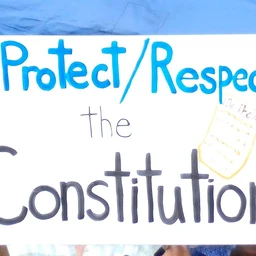 Protect/Respec
the
Constitution